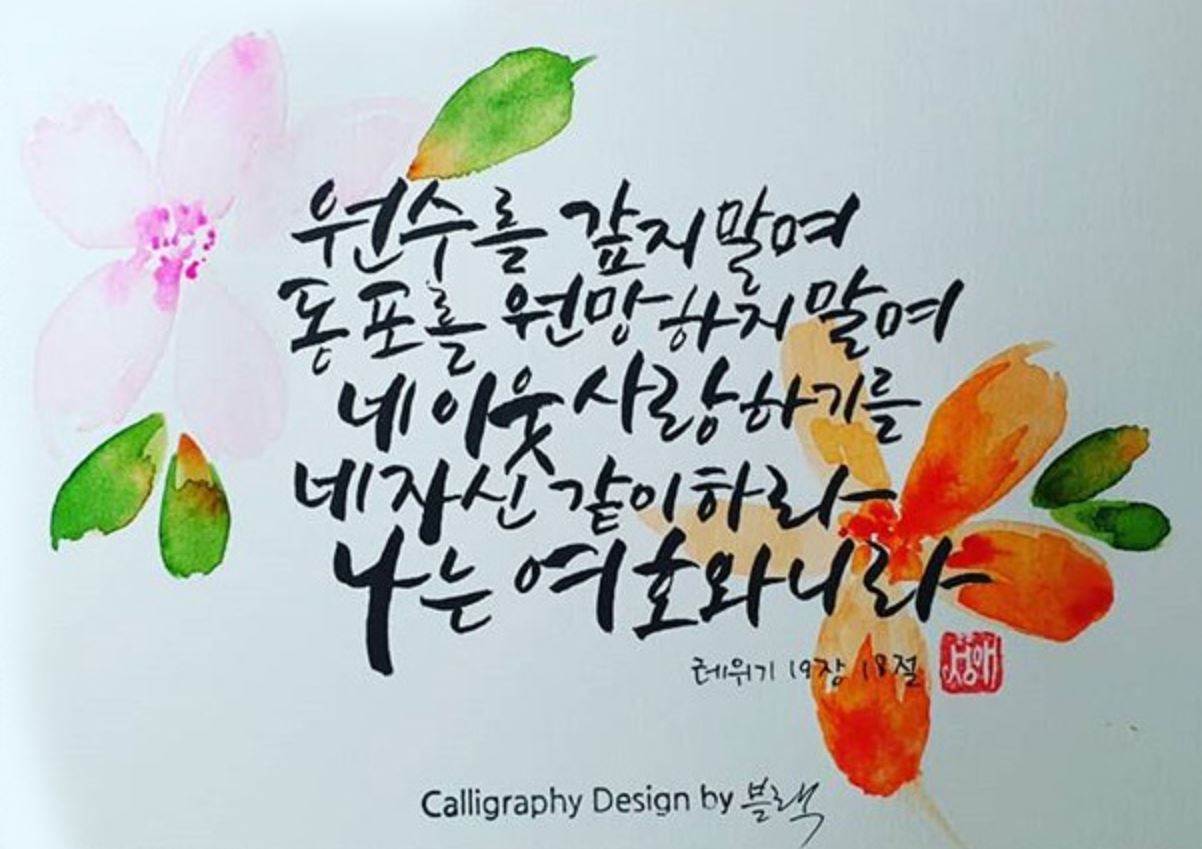 원수를 갚지말며
동포를 원망하지말며
네이웃사랑하기를
네자신같이하라
나는여호와니라
레위기 19장 18절
성애
Calligraphy Design by 블랙